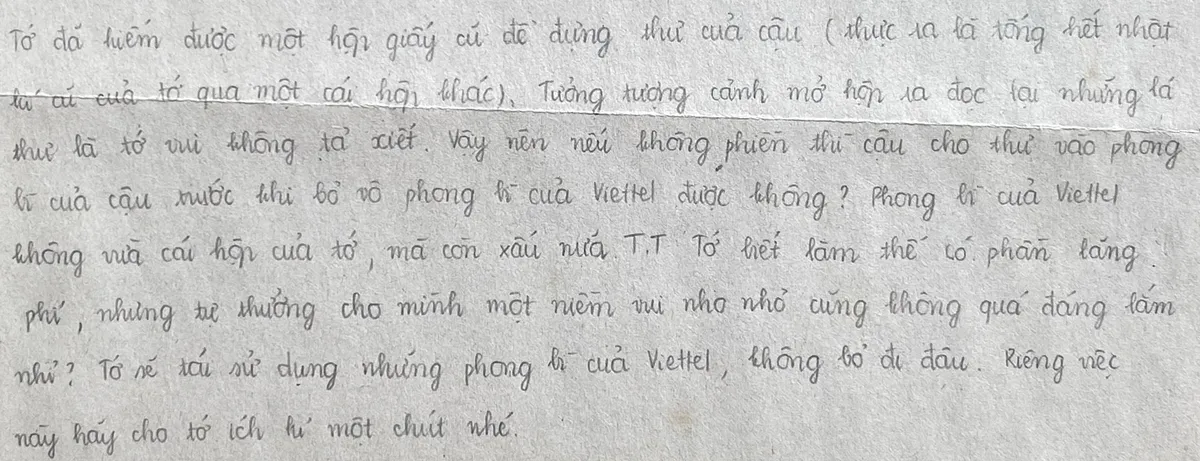 Tớ đã kiếm được một hộp giấy cũ để đựng thư của cậu (thực ra là tống hết nhật
kí cũ của tớ qua một cái hộp khác). Tưởng tượng cảnh mở hộp ra đọc lại những lá
thư là tớ vui không tả xiết. Vậy nên nếu không phiền thì cậu cho thư vào phong
bì của cậu trước khi bỏ vô phong bì của Viettel được không? Phong bì của Viettel
không vừa cái hộp của tớ, mà còn xấu nữa T.T Tớ biết làm thế có phần lãng
phí, nhưng tự thưởng cho mình một niềm vui nho nhỏ cũng không quá đáng lắm
nhỉ? Tớ sẽ tái sử dụng những phong bì của Viettel, không bỏ đi đâu. Riêng việc
này hãy cho tớ ích kỉ một chút nhé.